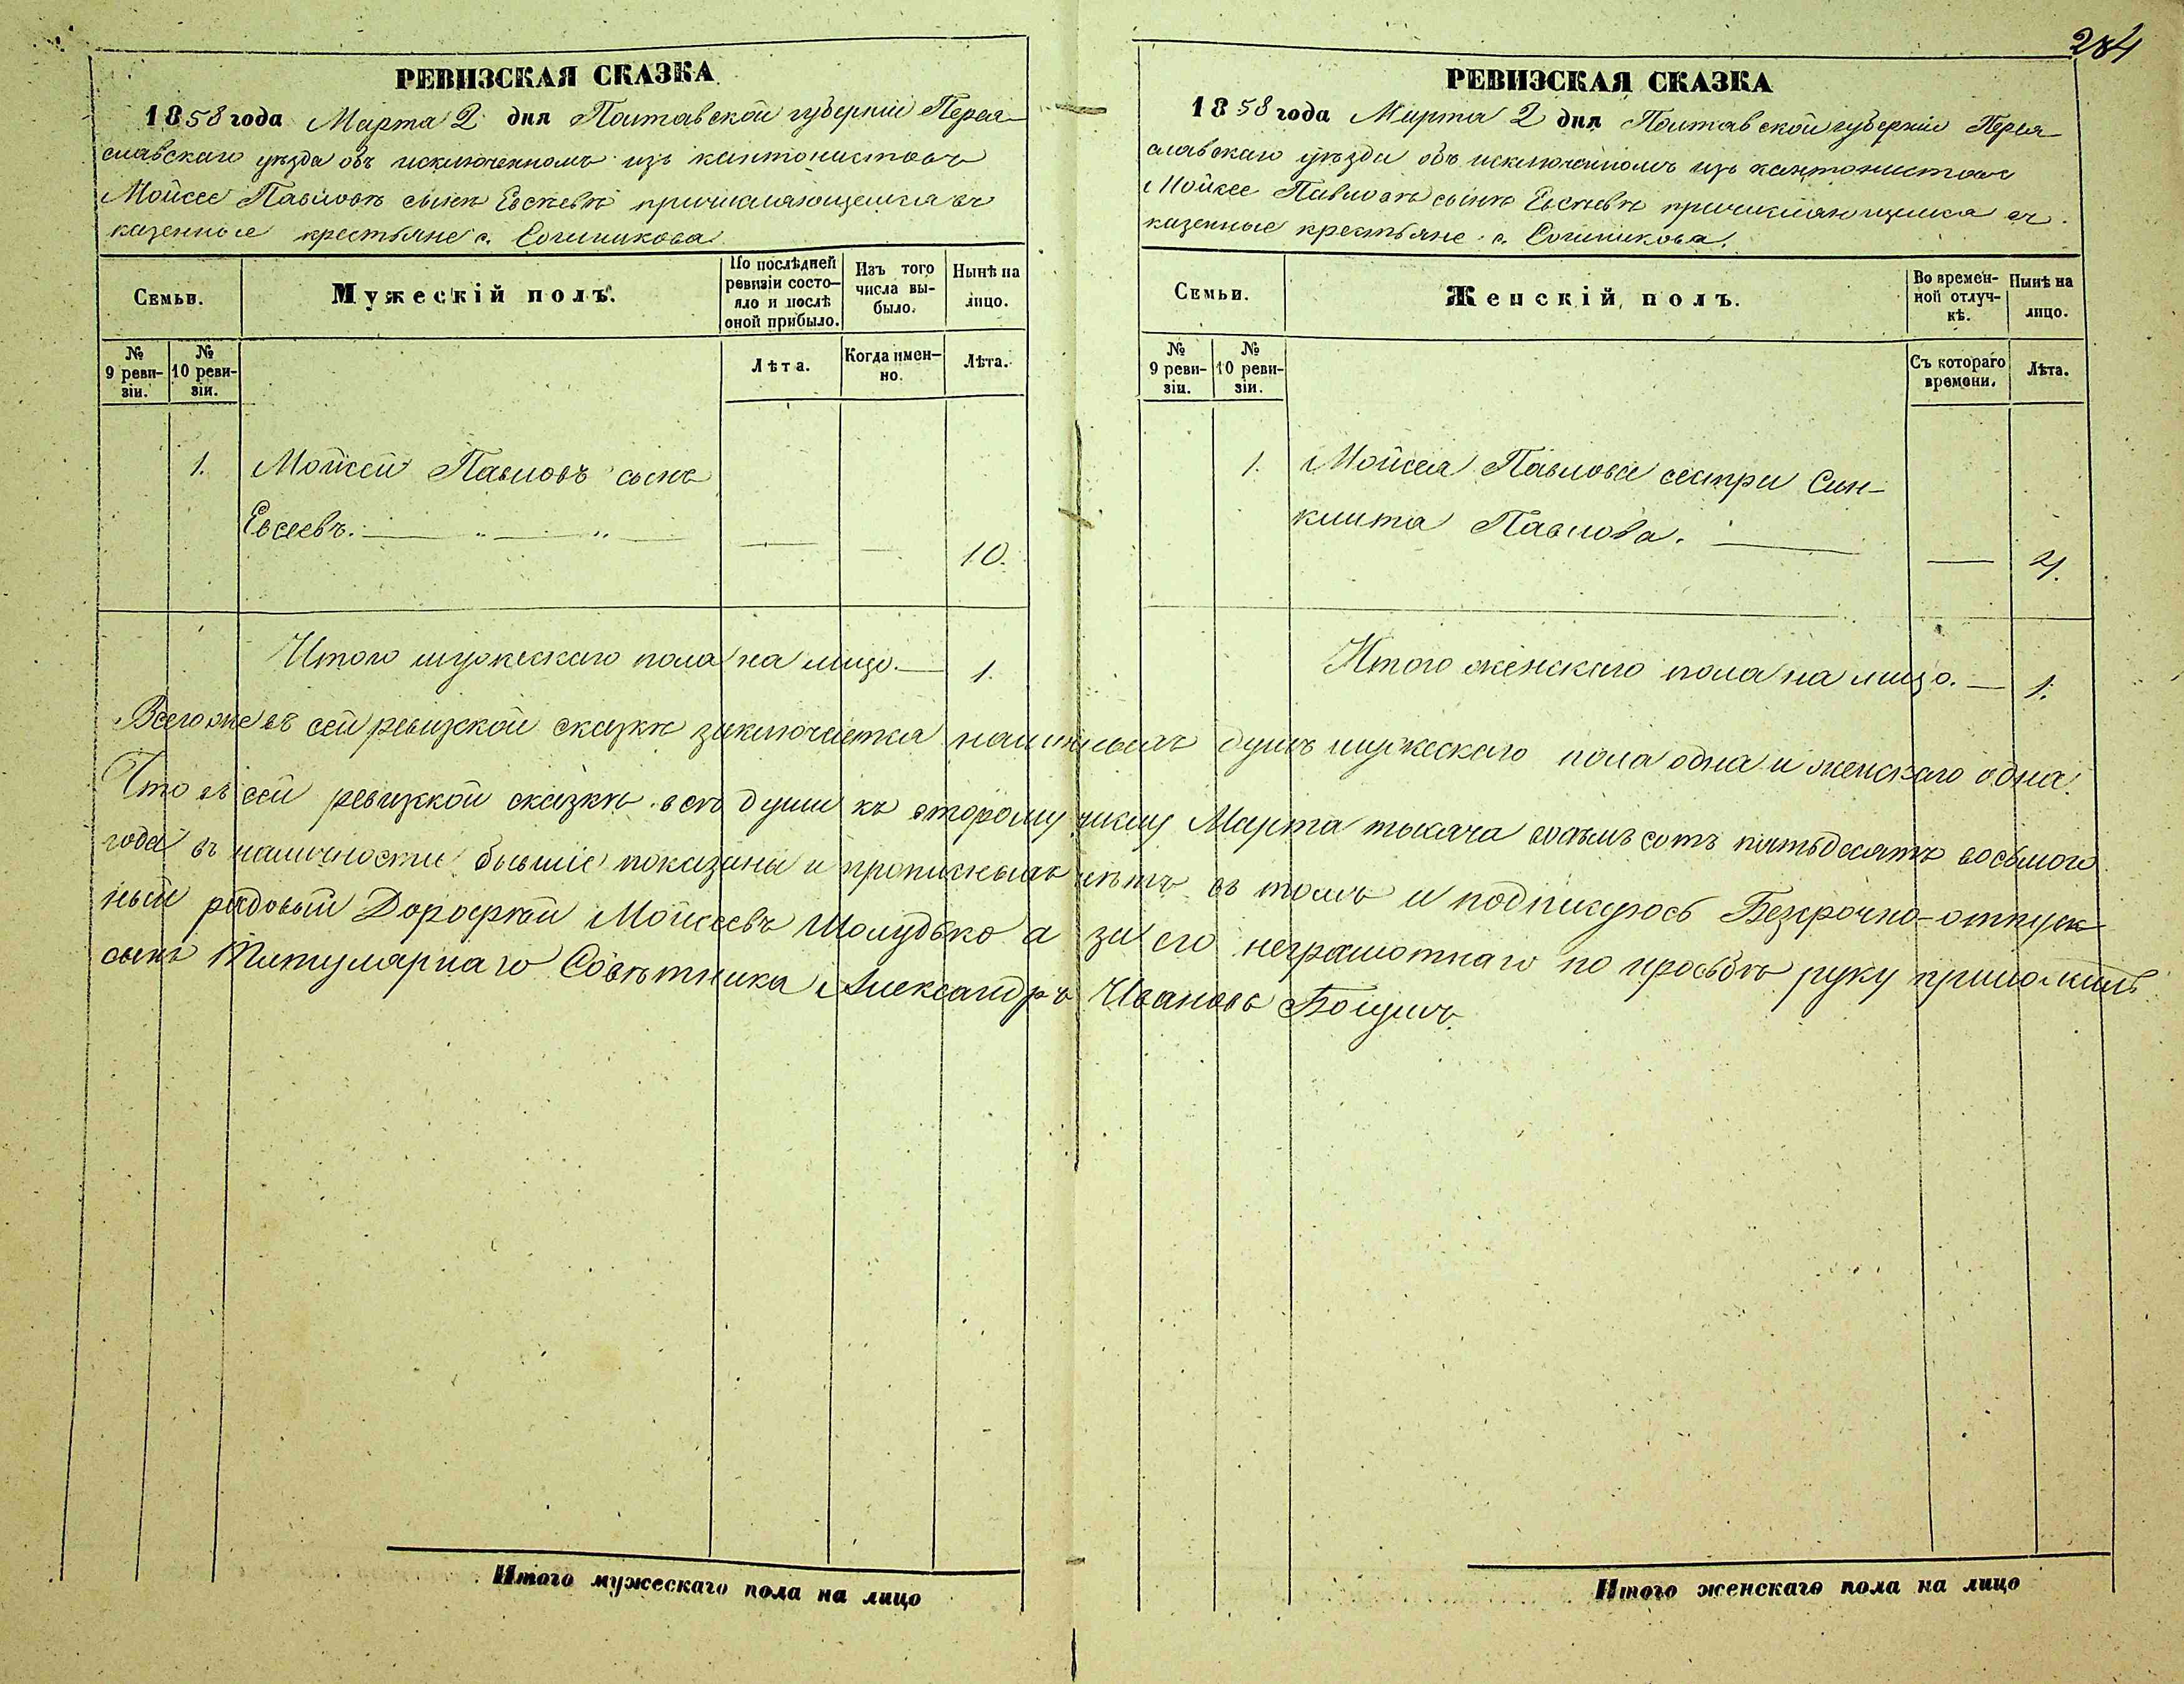 284
РЕВИЗСКАЯ СКАЗКА
1858 года Марта 2 дня Полтавской губерніи Перея-
славскаго уѣзда объ исключенномъ изъ кантонистовъ
Мойсее Павловѣ сынѣ Евсѣевѣ причисляющемся въ
казенные крестьяне с.
Семьи.
Мужескій полъ.
По послѣдней ревизіи состо-яло и послѣ оной прибыло.
Изъ того числа вы-было.
Нынѣ на лицо.
№ 9 реви-зіи.
№ 10 реви-зіи.
Лѣта.
Когда имен-но.
Лѣта.
1. Мойсей Павловъ сынъ
Евсеевъ. — „ — „ — — — 10.
Итого мужескаго пола на лицо. — 1.
РЕВИЗСКАЯ СКАЗКА
1858 года Марта 2 дня Полтавской губерніи Перея-
славскаго уѣзда объ исключенномъ изъ кантонистовъ
Мойсее Павловѣ сынѣ Евсѣевѣ причисляющемся въ
казенные крестьяне с.
Семьи.
Женскій полъ.
Во времен-ной отлуч-кѣ.
Нынѣ на лицо.
№ 9 реви-зіи.
№ 10 реви-зіи.
Съ котораго времени.
Лѣта.
1. Мойсея Павлова сестра Син-
клита Павлова. — —
Итого женскаго пола на лицо. — 1.
Всего же въ сей ревизской сказкѣ заключается наличныхъ душъ мужескаго пола одна и женскаго одна.
Что въ сей ревизкой сказкѣ всѣ души къ второму числу Марта тысяча восемь сотъ пятьдесятъ восьмого
года въ наличности бывшіе показаны и прописныхъ нѣтъ въ томъ и подписуюсь Безсрочно-отпуск-
ный рядовый Дорофей Мойсеевъ Шолудько а за его неграмотнаго по прозьбѣ руку приложилъ
сынъ Титулярнаго Совѣтника Александръ Ивановъ
Итого мужескаго пола на лицо
Итого женскаго пола на лицо